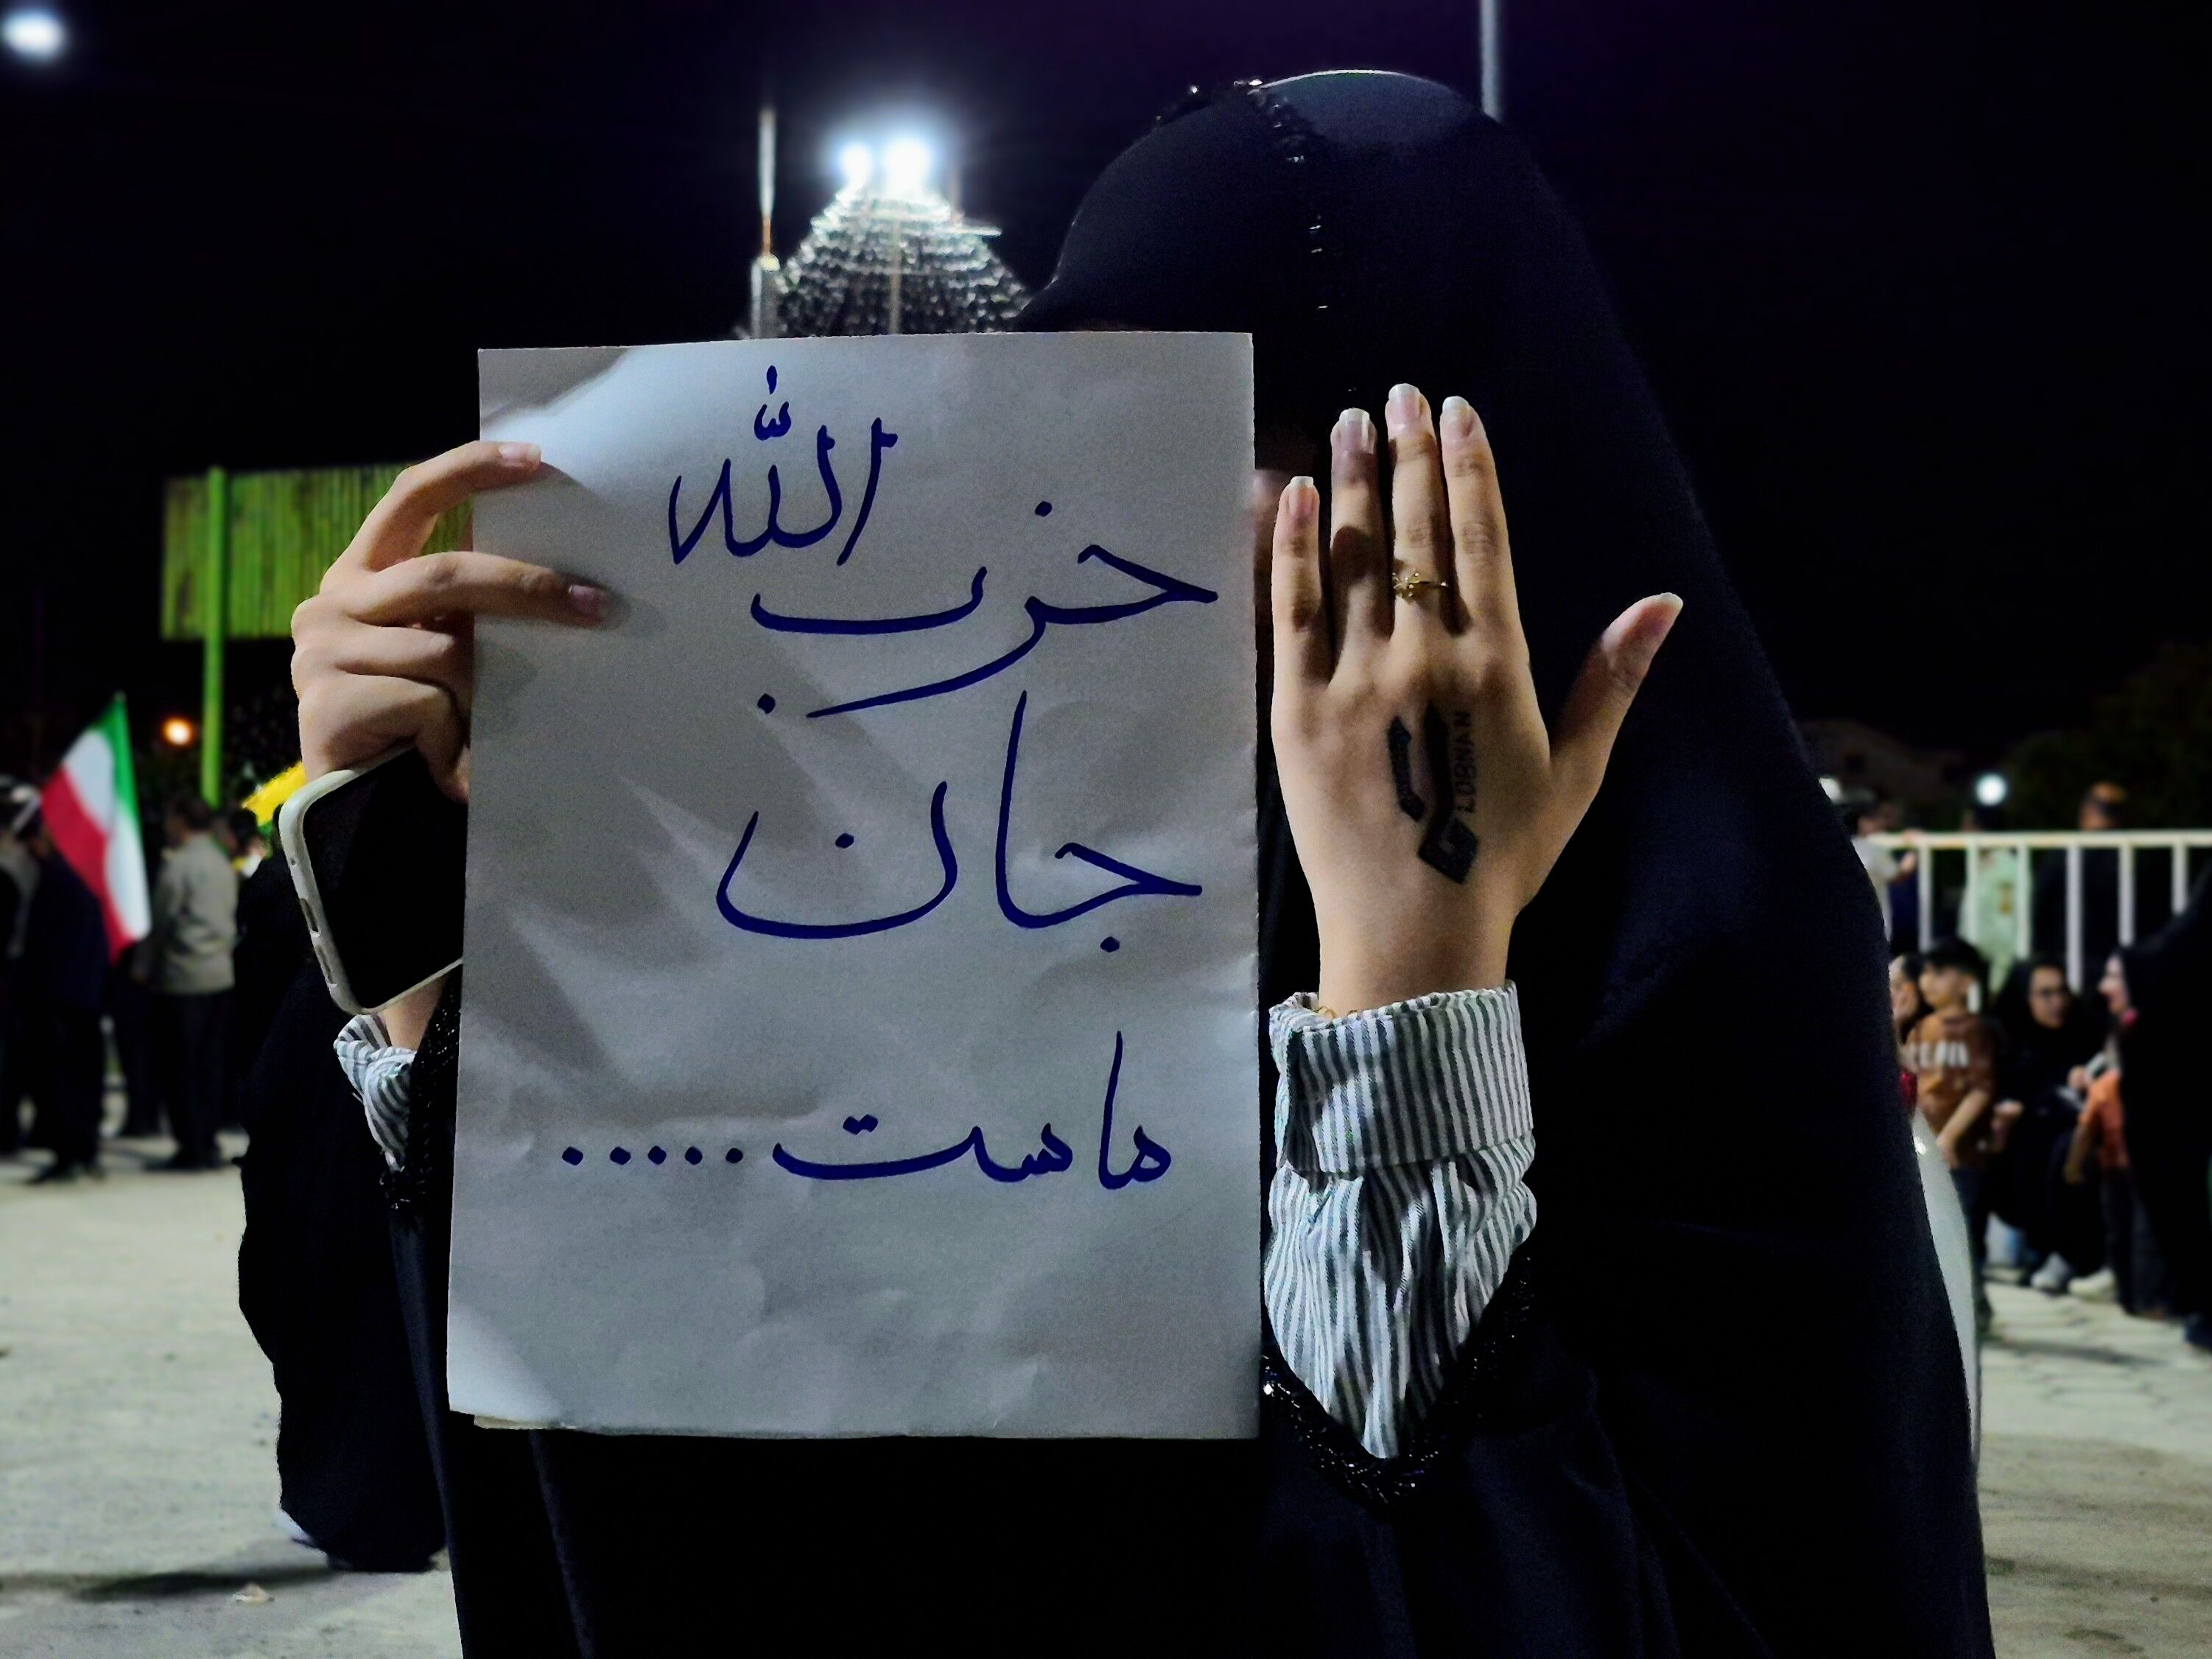 حزب الله
جان
ماست.....
LOBNAN